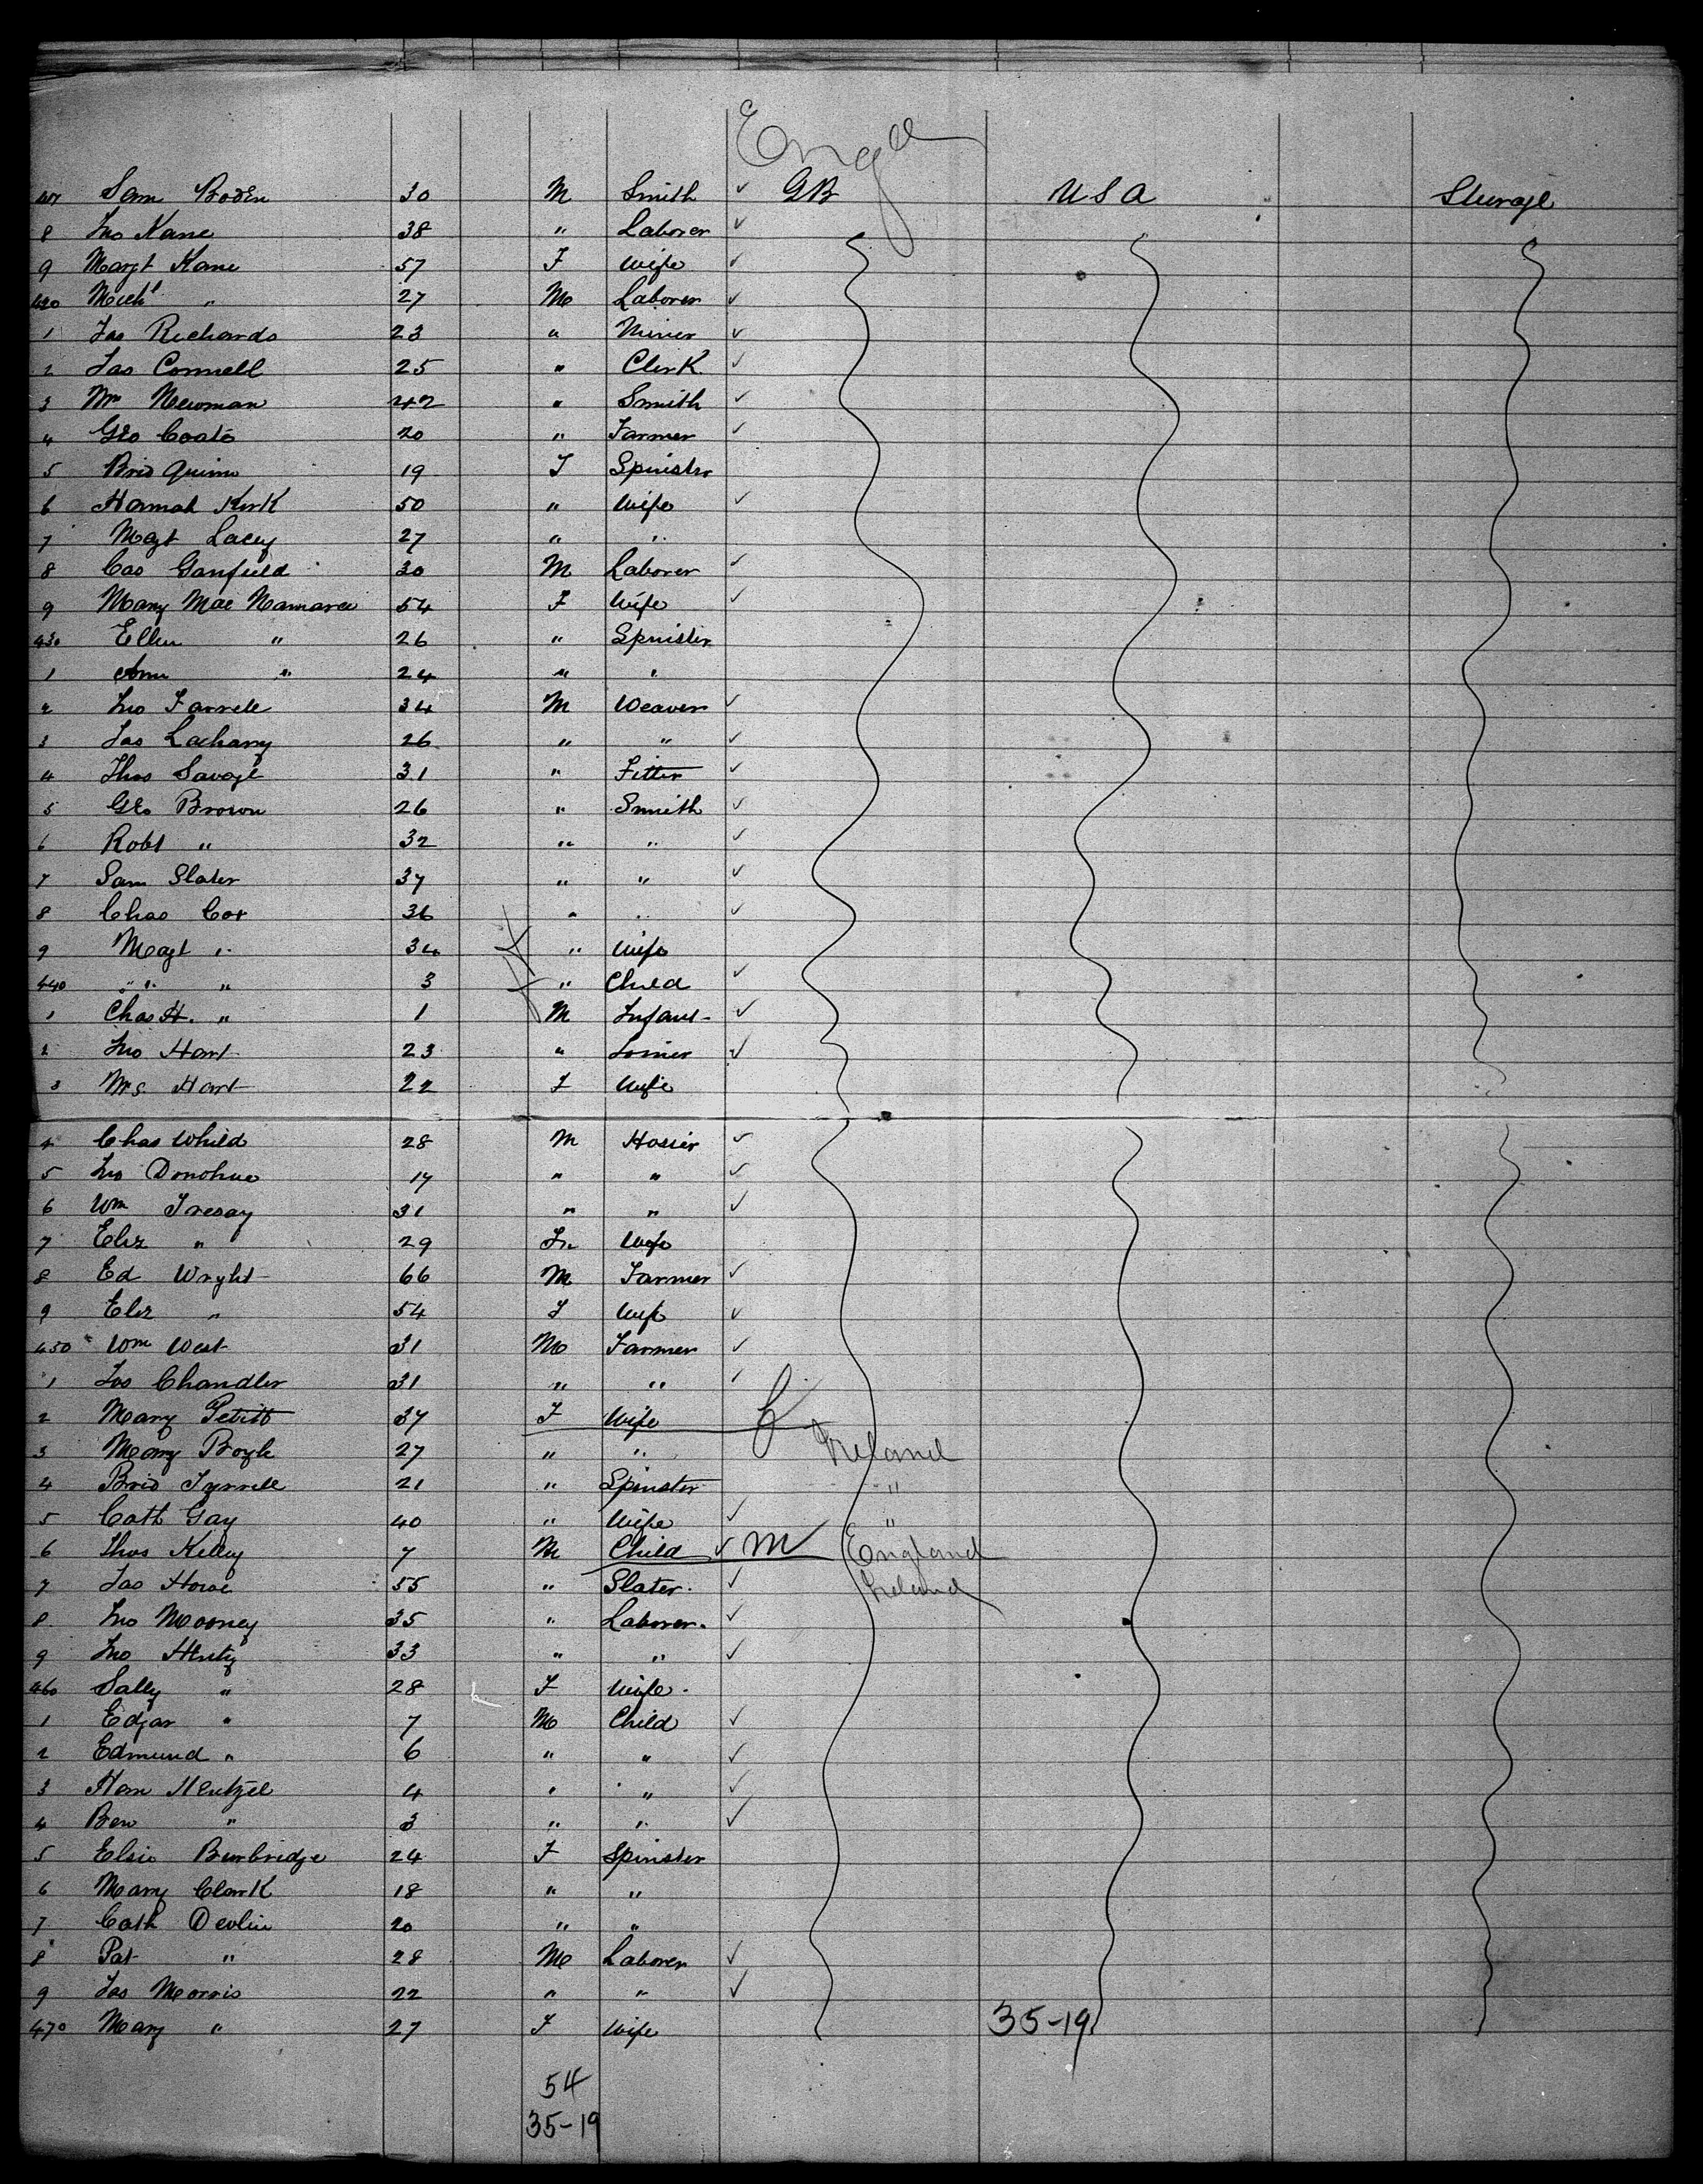 Engd
417 Sam Boden 30 M Smith ✓ GB USA Steerage
8 Jno Kane 38 " Laborer ✓
9 Margt Kane 57 F Wife ✓
420 Michl " 27 M Laborer ✓
1 Jas Richards 23 " Miner ✓
2 Jas Connell 25 " Clerk ✓
3 Wm Newman 42 " Smith ✓
4 Geo Coats 20 " Farmer ✓
5 Brid Quinn 19 F Spinster
6 Hannah Kirk 50 " Wife ✓
7 Magt Lacey 27 " "
8 Cas Ganfield 30 M Laborer ✓
9 Mary Mac Namara 54 F Wife ✓
430 Ellen " 26 " Spinster
1 Ann " 24 " "
2 Jno Farrell 34 M Weaver ✓
3 Jas 26 " " ✓
4 Thos Savage 31 " Fitter ✓
5 Geo Brown 26 " Smith ✓
6 Robt " 32 " " ✓
7 Sam Slater 37 " " ✓
8 Chas Cox 36 " " ✓
9 Magt " 34 " Wife
440 " " " 3 " Child ✓
1 Chas H. " 1 M Infant ✓
2 Jno Hart 23 " ✓
3 Mrs. Hart 22 F Wife
4 Chas Whild 28 M Hosier ✓
5 Jno Donohue 17 " " ✓
6 Wm Tresay 31 " " ✓
7 Eliz " 29 Wife
8 Ed Wright 66 M Farmer ✓
9 Eliz " 54 F Wife ✓
450 Wm West 31 M Farmer ✓
1 Jos Chandler 31 " " ✓
2 Mary Petitt 37 F Wife
3 Mary Boyle 27 " " Ireland
4 Brid Tyrrell 21 " Spinster "
5 Cath Gay 40 " Wife ✓ "
6 Thos Kelly 7 M Child ✓ M England
7 Jas Howe 55 " Slater ✓ Ireland
8 Jno Mooney 35 " Laborer ✓
9 Jno 33 " " ✓
460 Sally " 28 F Wife
1 Edgar " 7 M Child ✓
2 Edmund " 6 " " ✓
3 Ham Hentzel 4 " " ✓
4 Ben " 3 " " ✓
5 Elsie Burbridge 24 F Spinster
6 Mary Clark 18 " "
7 Cath Devlin 20 " "
8 Pat " 28 M Laborer ✓
9 Jas Morris 22 " " ✓
470 Mary " 27 F Wife 35-19
54
35-19